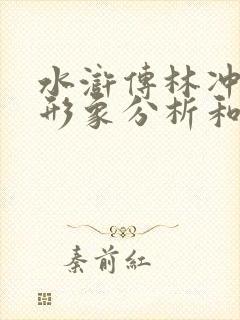 水滸傳林冲
形象分析和
秦前紅